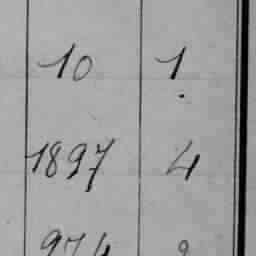 10 1
1897 4
974